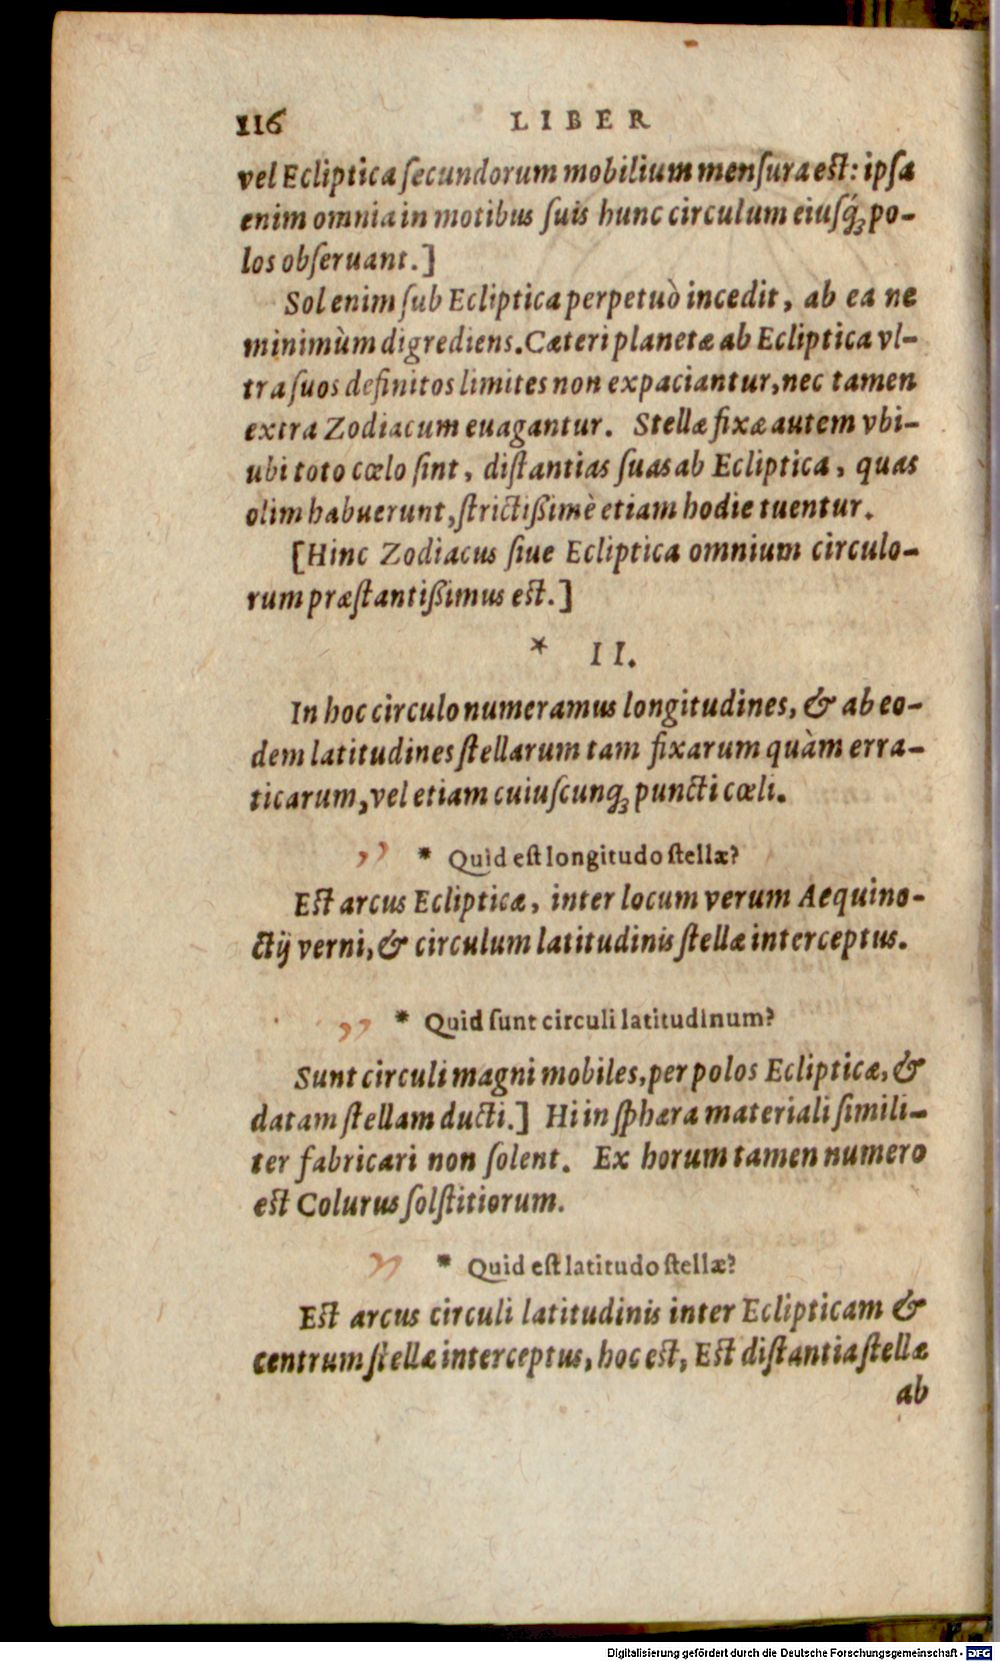 116 LIBER
vel Ecliptica ſecundorum mobilium menſura est: ipſa
enim omnia in motibus ſuis hunc circulum eiuſq́ꝫ po-
los obſeruant.]
Sol enim ſub Ecliptica perpetuò incedit, ab ea ne
minimùm digrediens. Cæteri planetæ ab Ecliptica vl-
tra ſuos definitos limites non expaciantur, nec tamen
extra Zodiacum euagantur. Stellæ fixæ autem vbi-
ubi toto cœlo ſint, diſtantias ſuas ab Ecliptica, quas
olim habuerunt, ſtrictißimè etiam hodie tuentur.
[Hinc Zodiacus ſiue Ecliptica omnium circulo-
rum præſtantißimus est.]
* II.
In hoc circulo numeramus longitudines, & ab eo-
dem latitudines ſtellarum tam fixarum quàm erra-
ticarum, vel etiam cuiuſcunqꝫ puncti cœli.
,, * Quid eſt longitudo ſtellæ?
Est arcus Eclipticæ, inter locum verum Aequino-
ctij verni, & circulum latitudinis ſtellæ interceptus.
,, * Quid ſunt circuli latitudinum?
Sunt circuli magni mobiles, per polos Eclipticæ, &
datam ſtellam ducti.] Hi in ſphæra materiali ſimili-
ter fabricari non ſolent. Ex horum tamen numero
est Colurus ſolſtitiorum.
,, * Quid eſt latitudo ſtellæ?
Est arcus circuli latitudinis inter Eclipticam &
centrum ſtellæ interceptus, hoc est, Est diſtantia ſtellæ
ab
Digitalisierung gefördert durch die Deutsche Forschungsgemeinschaft - DFG